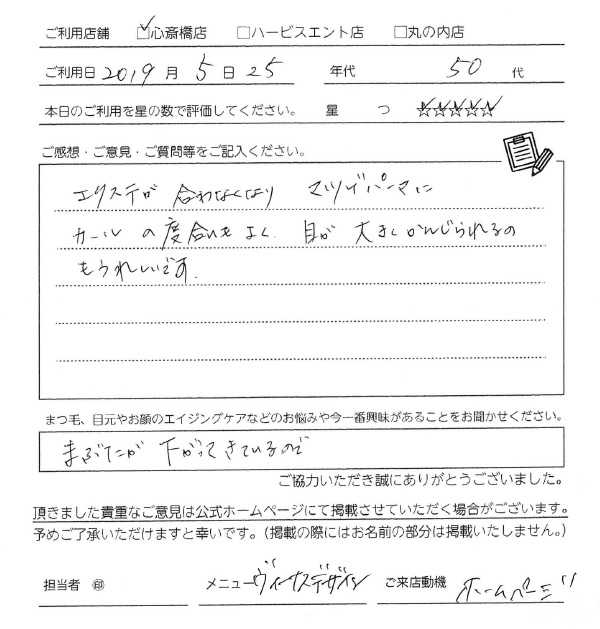 ご利用店舗 ☑心斎橋店 □ハービスエント店 □丸の内店
ご利用日 2019 月 5 日 25 年代 50 代
本日のご利用を星の数で評価してください。 星 つ ☆☆☆☆☆
ご感想・ご意見・ご質問等をご記入ください。
エクステが 合わなくなり マツゲパーマに
カールの度合いもよく 目が大きくかんじられるの
もうれしいです。
まつ毛、目元やお顔のエイジングケアなどのお悩みや今一番興味があることをお聞かせください。
まぶたが下がってきているので
ご協力いただき誠にありがとうございました。
頂きました貴重なご意見は公式ホームページにて掲載させていただく場合がございます。
予めご了承いただけますと幸いです。(掲載の際にはお名前の部分は掲載いたしません。)
担当者 ㊞ メニュー ヴィーナスデザイン ご来店動機 ホームページ